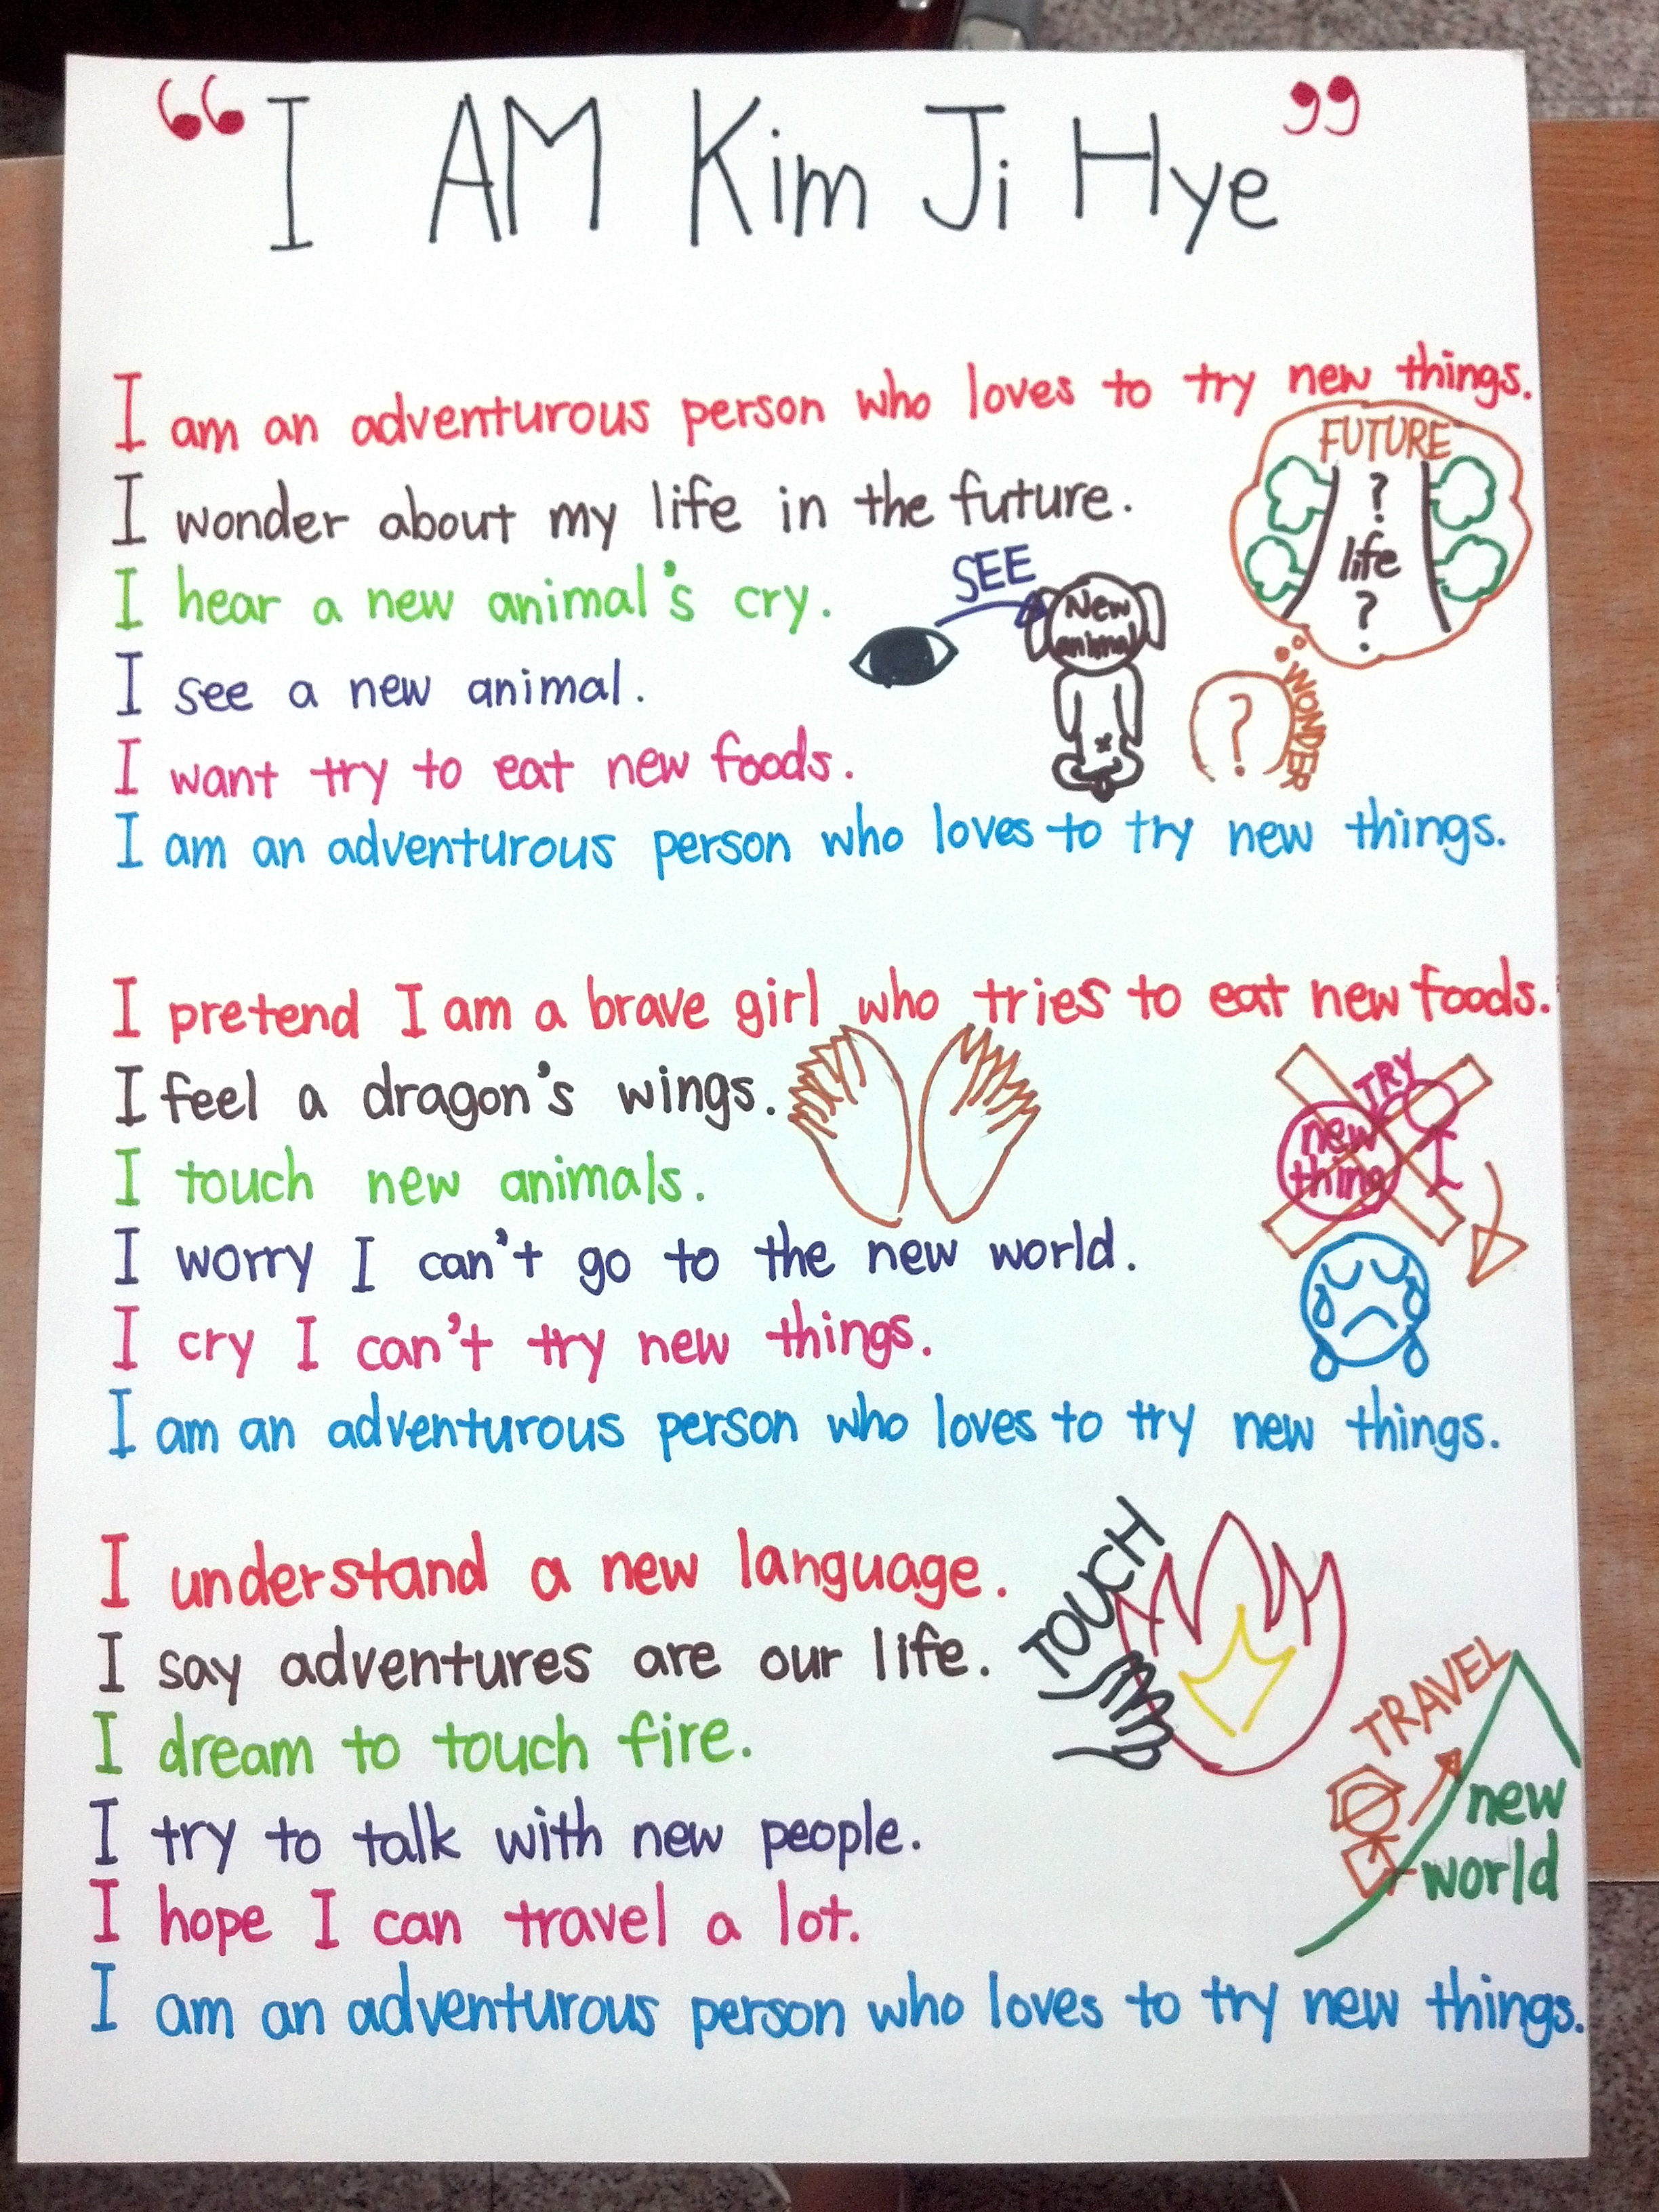 “I AM Kim Ji Hye”
I am an adventurous person who loves to try new things.
I wonder about my life in the future.
I hear a new animal's cry.
I see a new animal.
I want try to eat new foods.
I am an adventurous person who loves to try new things.
FUTURE
?
life
?
SEE
New
animal
?
WONDER
I pretend I am a brave girl who tries to eat new foods.
I feel a dragon's wings.
I touch new animals.
I worry I can't go to the new world.
I cry I can't try new things.
I am an adventurous person who loves to try new things.
TRY
new
thing
I
I understand a new language.
I say adventures are our life.
I dream to touch fire.
I try to talk with new people.
I hope I can travel a lot.
I am an adventurous person who loves to try new things.
TOUCH
TRAVEL
new
world